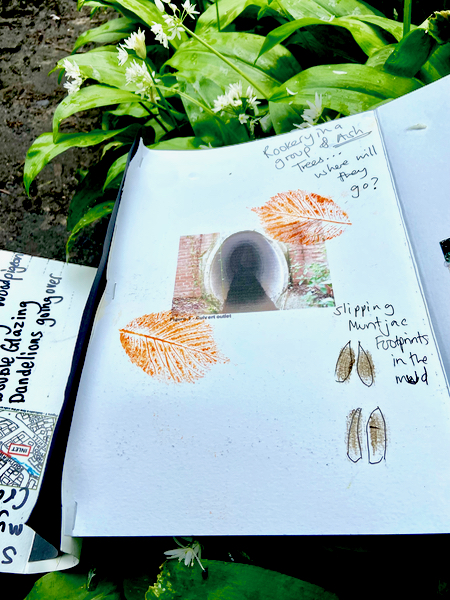 Rookery in a
group of Ash
Trees...
where will
they
go?
Culvert outlet
Slipping
Muntjac
Footprints
in the
mud
Woodpigeon
Double Glazing
Dandelions going over
INLET